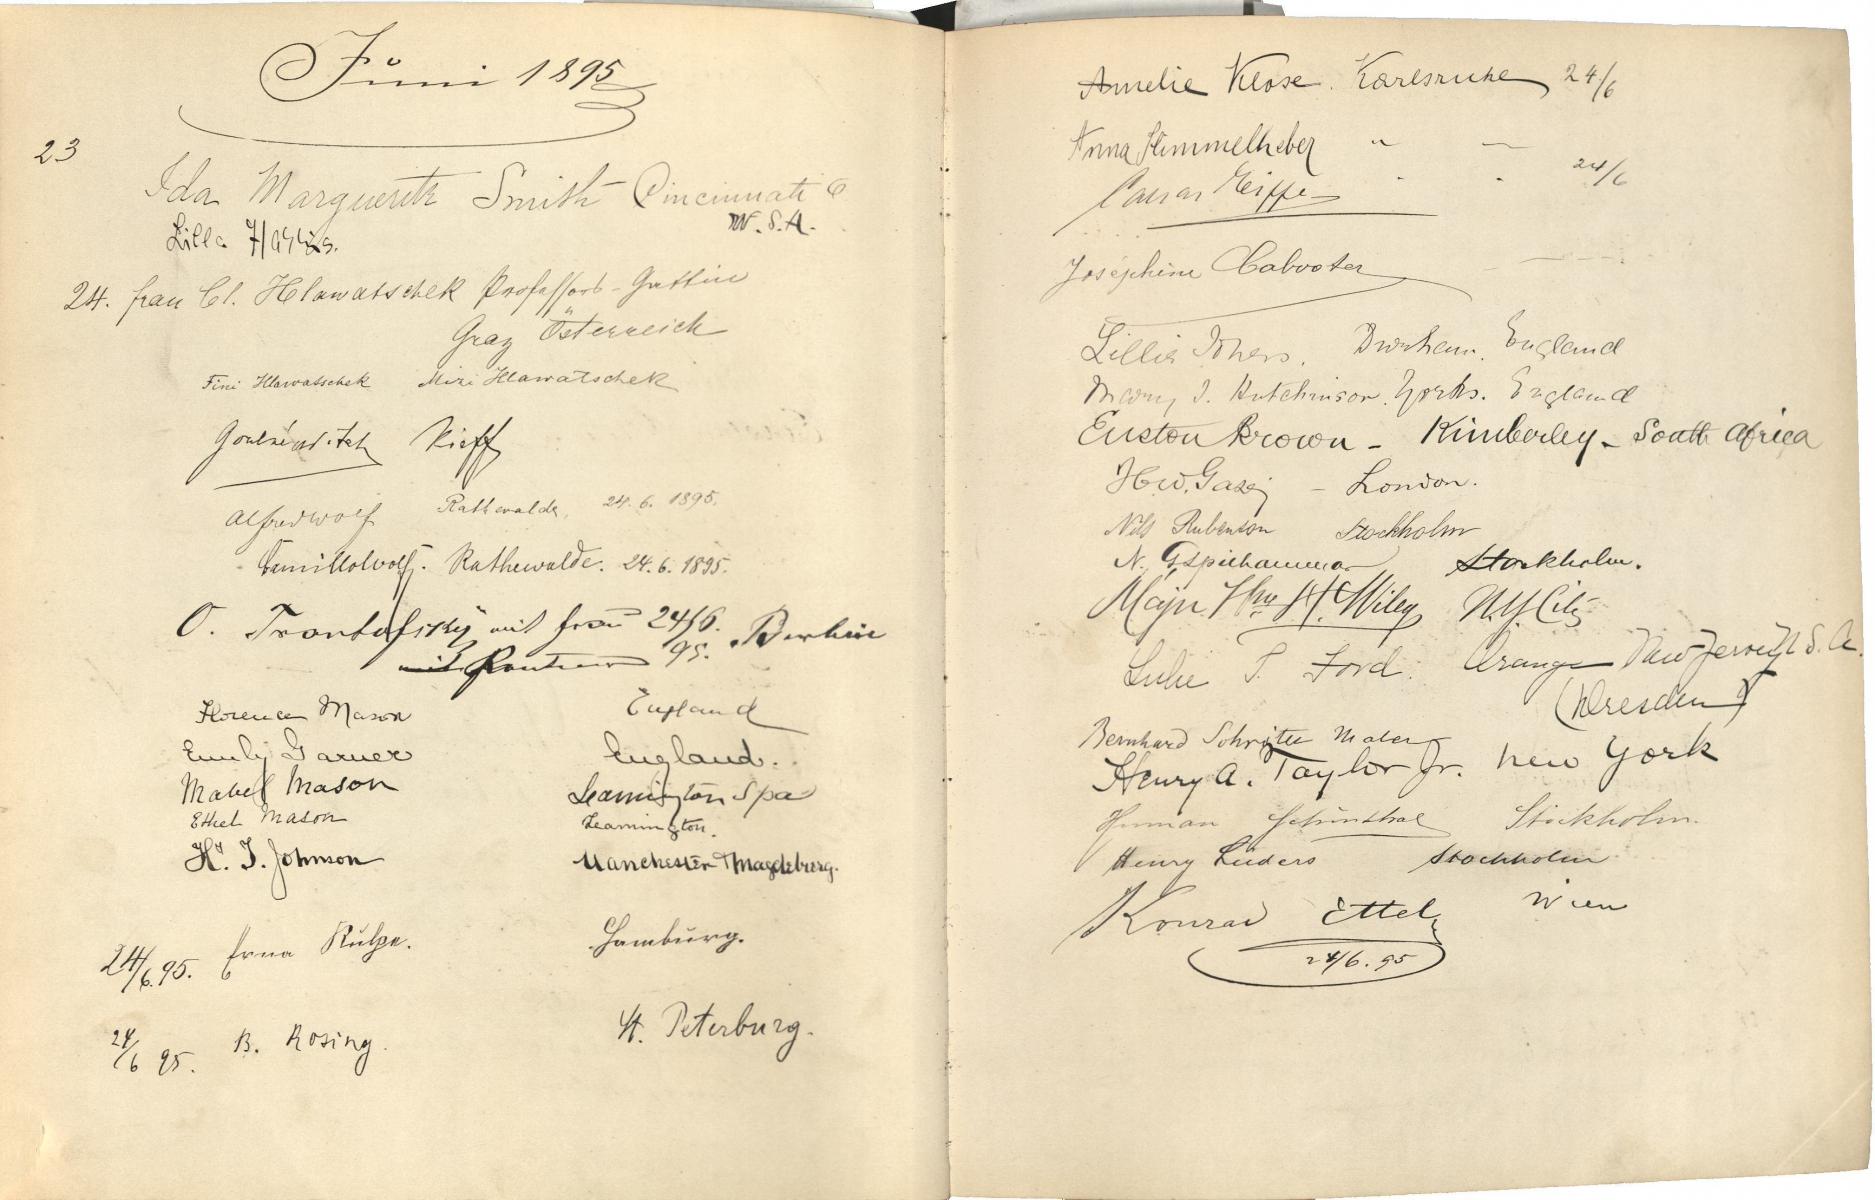 Jüni 1895
23
Ida Marguerite Smith Cincinnati O
U.S.A.
Lilla
24. frau Cl. Hlawatschek Professors-Gattin
Graz Österreich
Fini Hlawatschek Mizi Hlawatschek
Kieff
Alfred Wolf Rathewalde, 24.6.1895.
Camillo Wolf. Rathewalde. 24.6.1895.
O. mit Frau 24/6. 95. Berlin
mit
Florence Mason England
Emily Garner England.
Mabel Mason Leamington Spa
Ethel Mason Leamington.
H. J. Johnson Manchester & Magdeburg.
24/6.95. Erna Külpe. Hamburg.
24/6 95. B. Rosing. St. Peterburg.
Amelie Klose. Karlsruhe 24/6
Anna Himmelheber " —
24/6
Joséphine
Lillie Durham. England
Mary J. Hutchinson. Yorks. England
Euston Brown - Kimberley - South Africa
H.W. - London.
Nils Rubenson Stockholm
N. Stockholm.
Major Wm H. Wiley N.Y. City
Lulie T. Ford. Orange New Jersey U.S.A.
(Dresden)
Bernhard Schröter Maler
Henry A. Taylor Jr. New York
Herman Stockholm.
Henry Lüders Stockholm
Konrad Ettel Wien
24/6.95